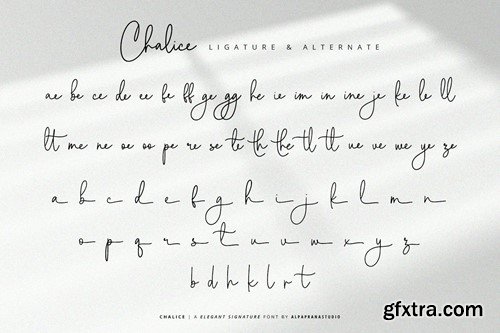 Chalice LIGATURE & ALTERNATE
ae be ce de ee fe ff ge gg he ie im in ine je ke le ll
lt me ne oe oo pe re se te th the tl tt ue ve we ye ze
a b c d e f g h i j k l m n
o p q r s t u v w x y z
b d h k l r t
CHALICE | A ELEGANT SIGNATURE FONT BY ALPAPRANASTUDIO
gfxtra.com